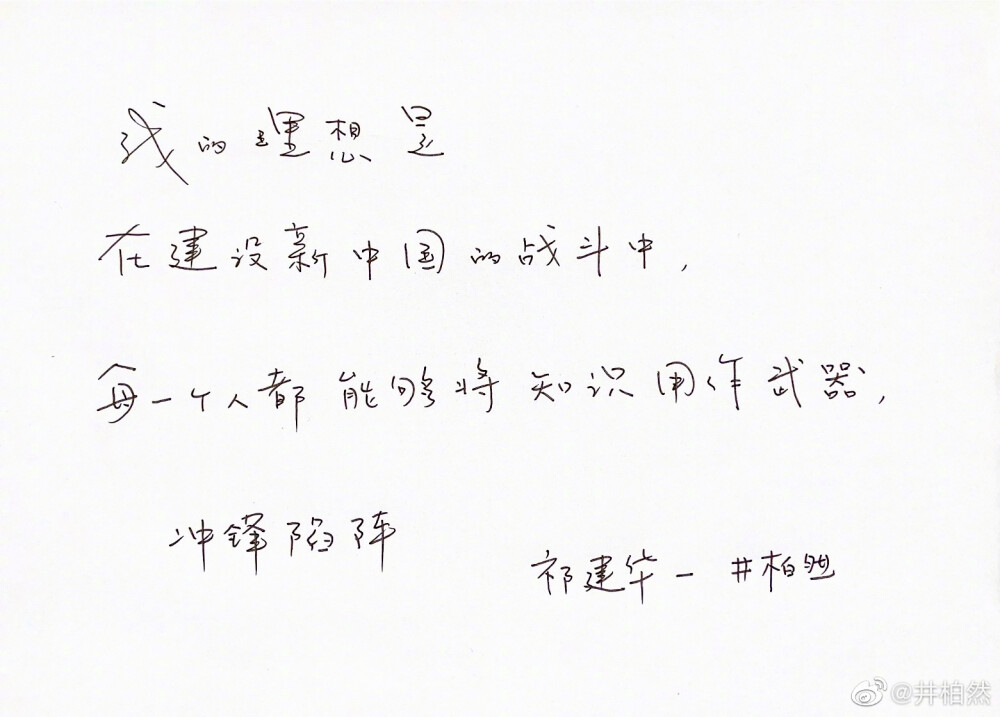 我的理想是
在建设新中国的战斗中，
每一个人都能够将知识用作武器，
冲锋陷阵
祁建华 — 井柏然
@井柏然